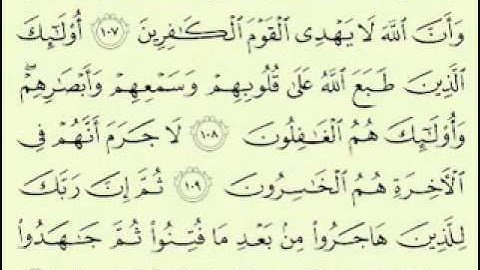 وَأَنَّ ٱللَّهَ لَا يَهْدِى ٱلْقَوْمَ ٱلْكَـٰفِرِينَ ١٠٧ أُو۟لَـٰٓئِكَ
ٱلَّذِينَ طَبَعَ ٱللَّهُ عَلَىٰ قُلُوبِهِمْ وَسَمْعِهِمْ وَأَبْصَـٰرِهِمْ ۖ
وَأُو۟لَـٰٓئِكَ هُمُ ٱلْغَـٰفِلُونَ ١٠٨ لَا جَرَمَ أَنَّهُمْ فِى
ٱلْـَٔاخِرَةِ هُمُ ٱلْخَـٰسِرُونَ ١٠٩ ثُمَّ إِنَّ رَبَّكَ
لِلَّذِينَ هَاجَرُوا۟ مِنۢ بَعْدِ مَا فُتِنُوا۟ ثُمَّ جَـٰهَدُوا۟